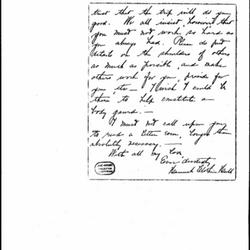 trust that the trip will do you
good. We all insist, however that
you must not work so hard as
you always had. Please do put
details on the shoulders of others
as much as possible, and make
others work for you, provide for
you, etc — I wish I could be
there to help constitute a
body guard. —
I must not call upon you
to read a letter even, longer than
absolutely necessary. —
With all my love
Ever devotedly
Hannah